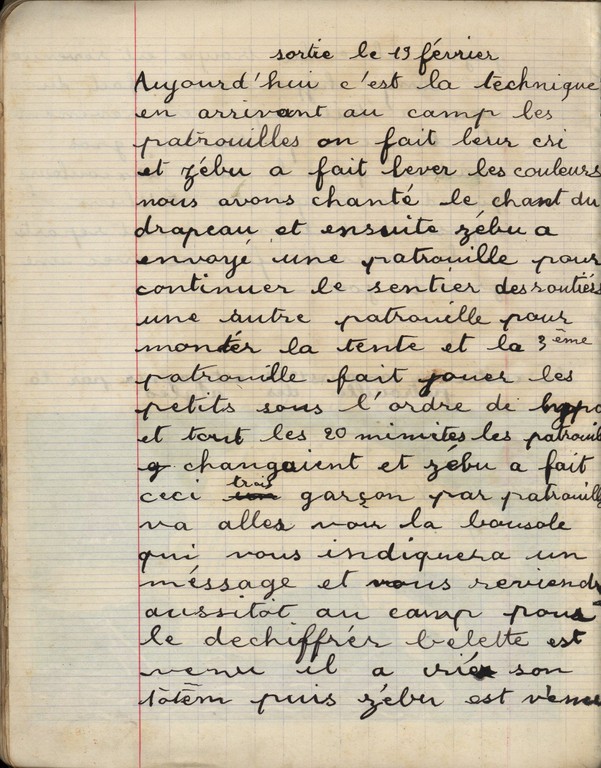 sortie le 19 février
Aujourd'hui c'est la technique
en arrivant au camp les
patrouilles on fait leur cri
et zébu a fait lever les couleurs
nous avons chanté le chant du
drapeau et ensuite zébu a
envoyé une patrouille pour
continuer le sentier des routiers
une autre patrouille pour
montér la tente et la 3ème
patrouille fait jouer les
petits sous l'ordre de
et tout les 20 minites les patrouill
changaient et zébu a fait
ceci trois garçon par patrouill
va alles voir la bousole
qui vous indiquera un
méssage et vous reviendr
aussitot au camp pour
le dechiffrér belette est
venu il a crié son
totèm puis zébu est venu